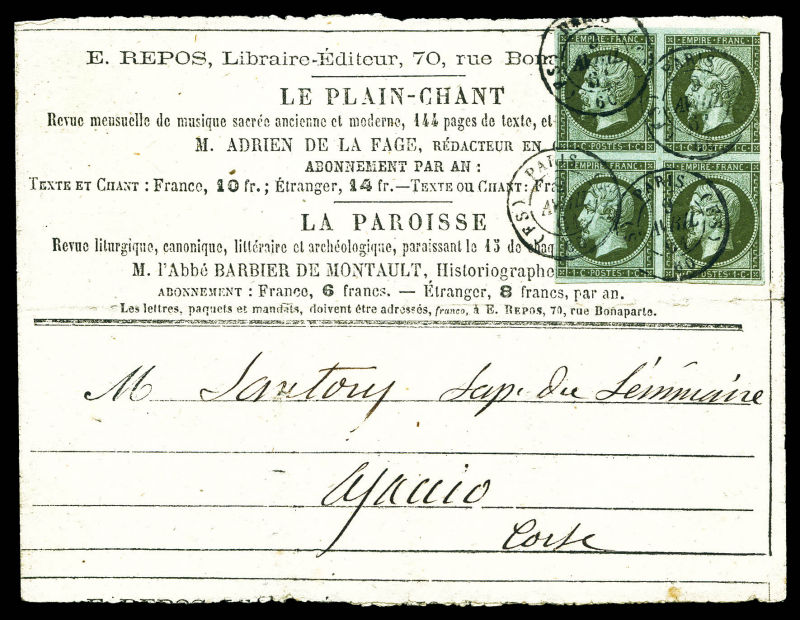 E. REPOS, Libraire-Éditeur, 70, rue Bona
LE PLAIN-CHANT
Revue mensuelle de musique sacrée ancienne et moderne, 144 pages de texte, et
M. ADRIEN DE LA FAGE, RÉDACTEUR EN
ABONNEMENT PAR AN :
TEXTE ET CHANT : France, 10 fr. ; Étranger, 14 fr.—TEXTE OU CHANT : Fra
LA PAROISSE
Revue liturgique, canonique, littéraire et archéologique, paraissant le 15 de chaq
M. l'Abbé BARBIER DE MONTAULT, Historiographe
ABONNEMENT : France, 6 francs. — Étranger, 8 francs, par an.
Les lettres, paquets et mandats, doivent être adressés, franco, à E. REPOS, 70, rue Bonaparte.
EMPIRE FRANC
EMPIRE FRANC
1·C·POSTES·1·C
1·C·POSTES·1·C
EMPIRE FRANC
1·C·POSTES·1·C
1·C·POSTES·1·C
PARIS
AVRIL
60
PARIS
PARIS
(PS)
PARIS
AVRIL
M Sartory Sup. du Séminaire
Ajaccio
Corse
E. REPOS